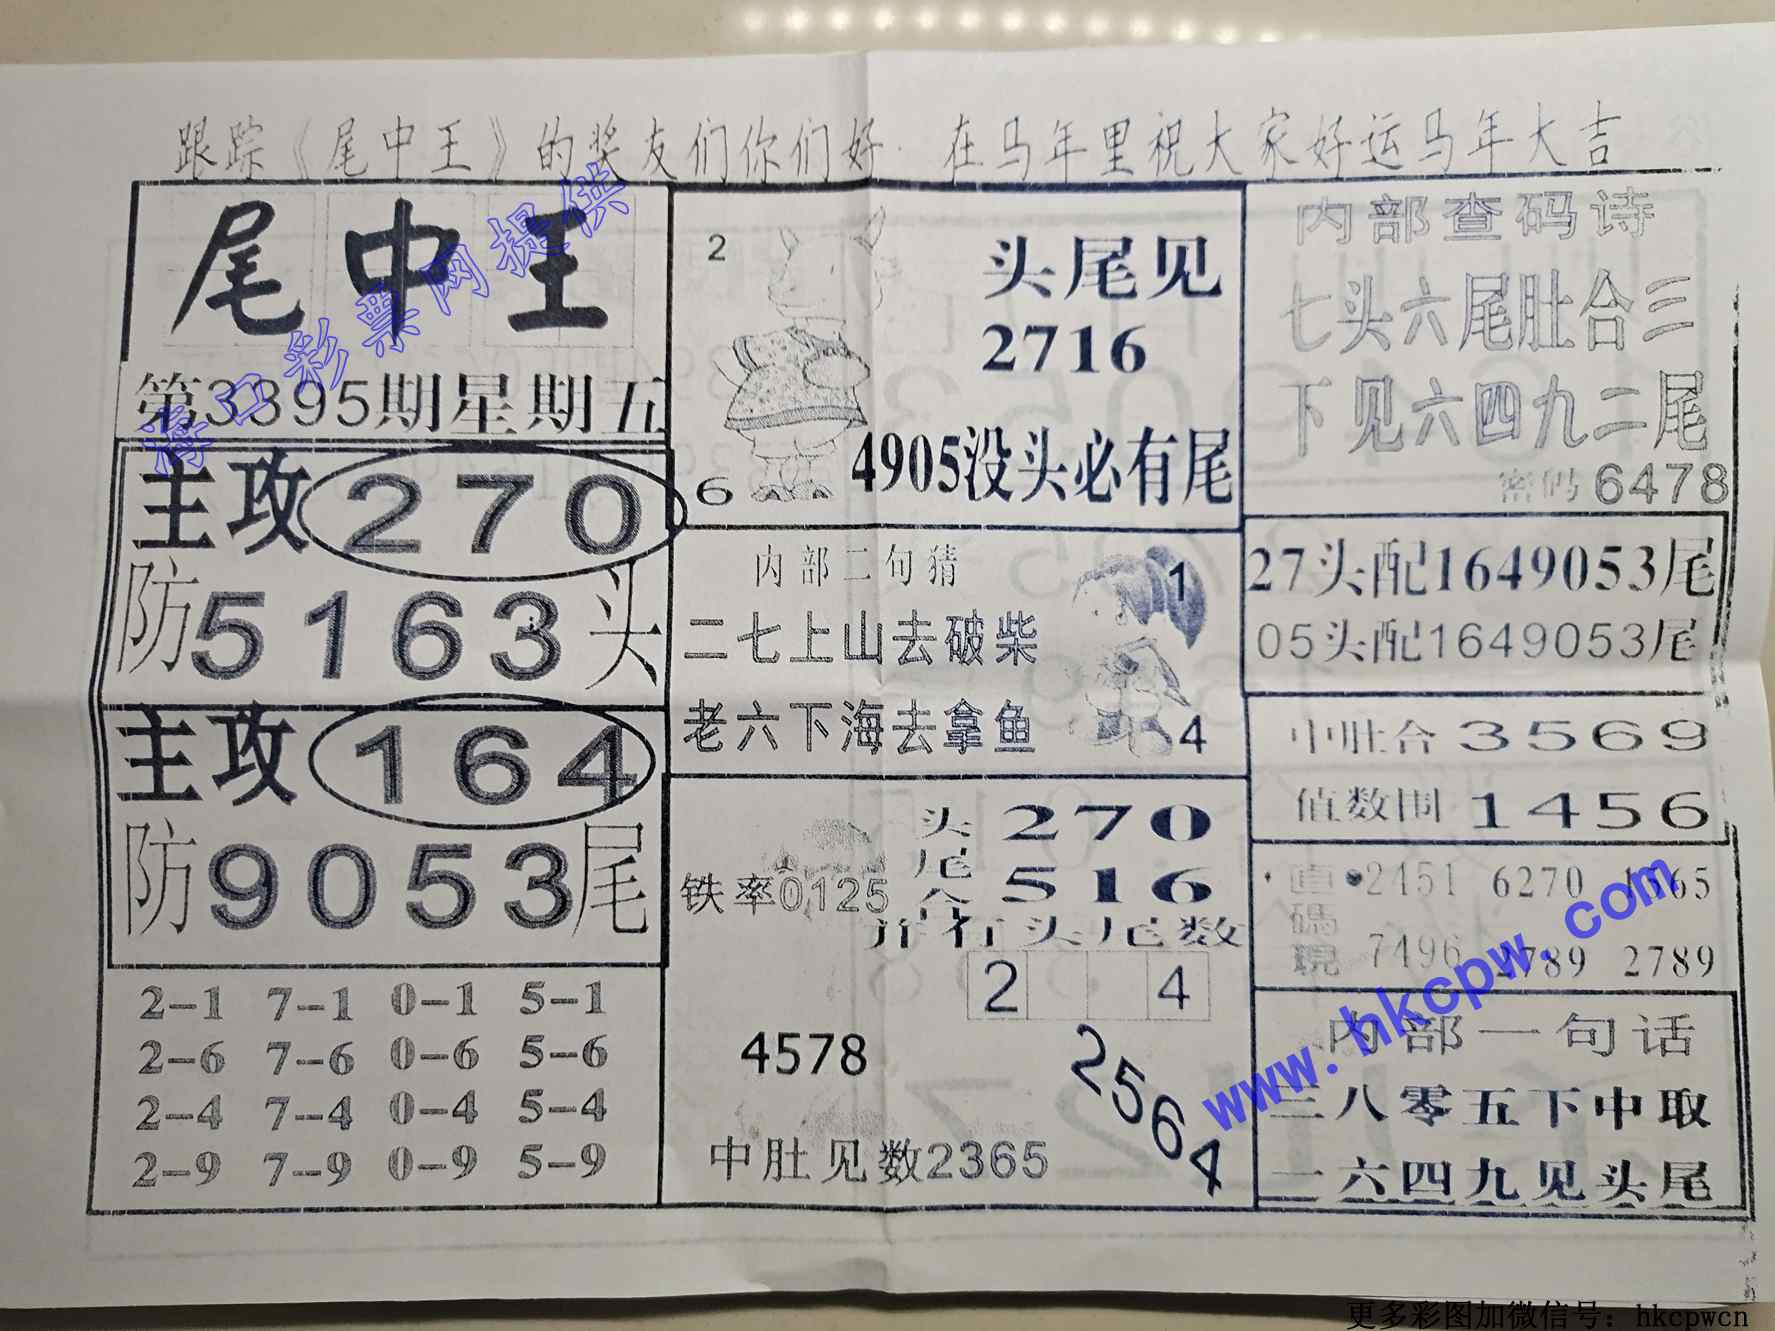 跟踪《尾中王》的奖友们你们好.在马年里祝大家好运马年大吉
尾中王
第3395期星期五
主攻270
防5163头
主攻164
防9053尾
2-1 7-1 0-1 5-1
2-6 7-6 0-6 5-6
2-4 7-4 0-4 5-4
2-9 7-9 0-9 5-9
2
头尾见
2716
4905没头必有尾
6
内部二句猜
1
二七上山去破柴
老六下海去拿鱼
4
头270
尾
合516
铁率0125
并有头尾数
2 4
4578
2564
中肚见数2365
内部查码诗
七头六尾肚合三
下见六四九二尾
密码6478
27头配1649053尾
05头配1649053尾
中肚合3569
值数围1456
直碼現
2451 6270 1365
7496 2789 2789
内部一句话
三八零五下中取
一六四九见头尾
海口彩票网提供
www.hkcpw.com
更多彩图加微信号：hkcpwcn